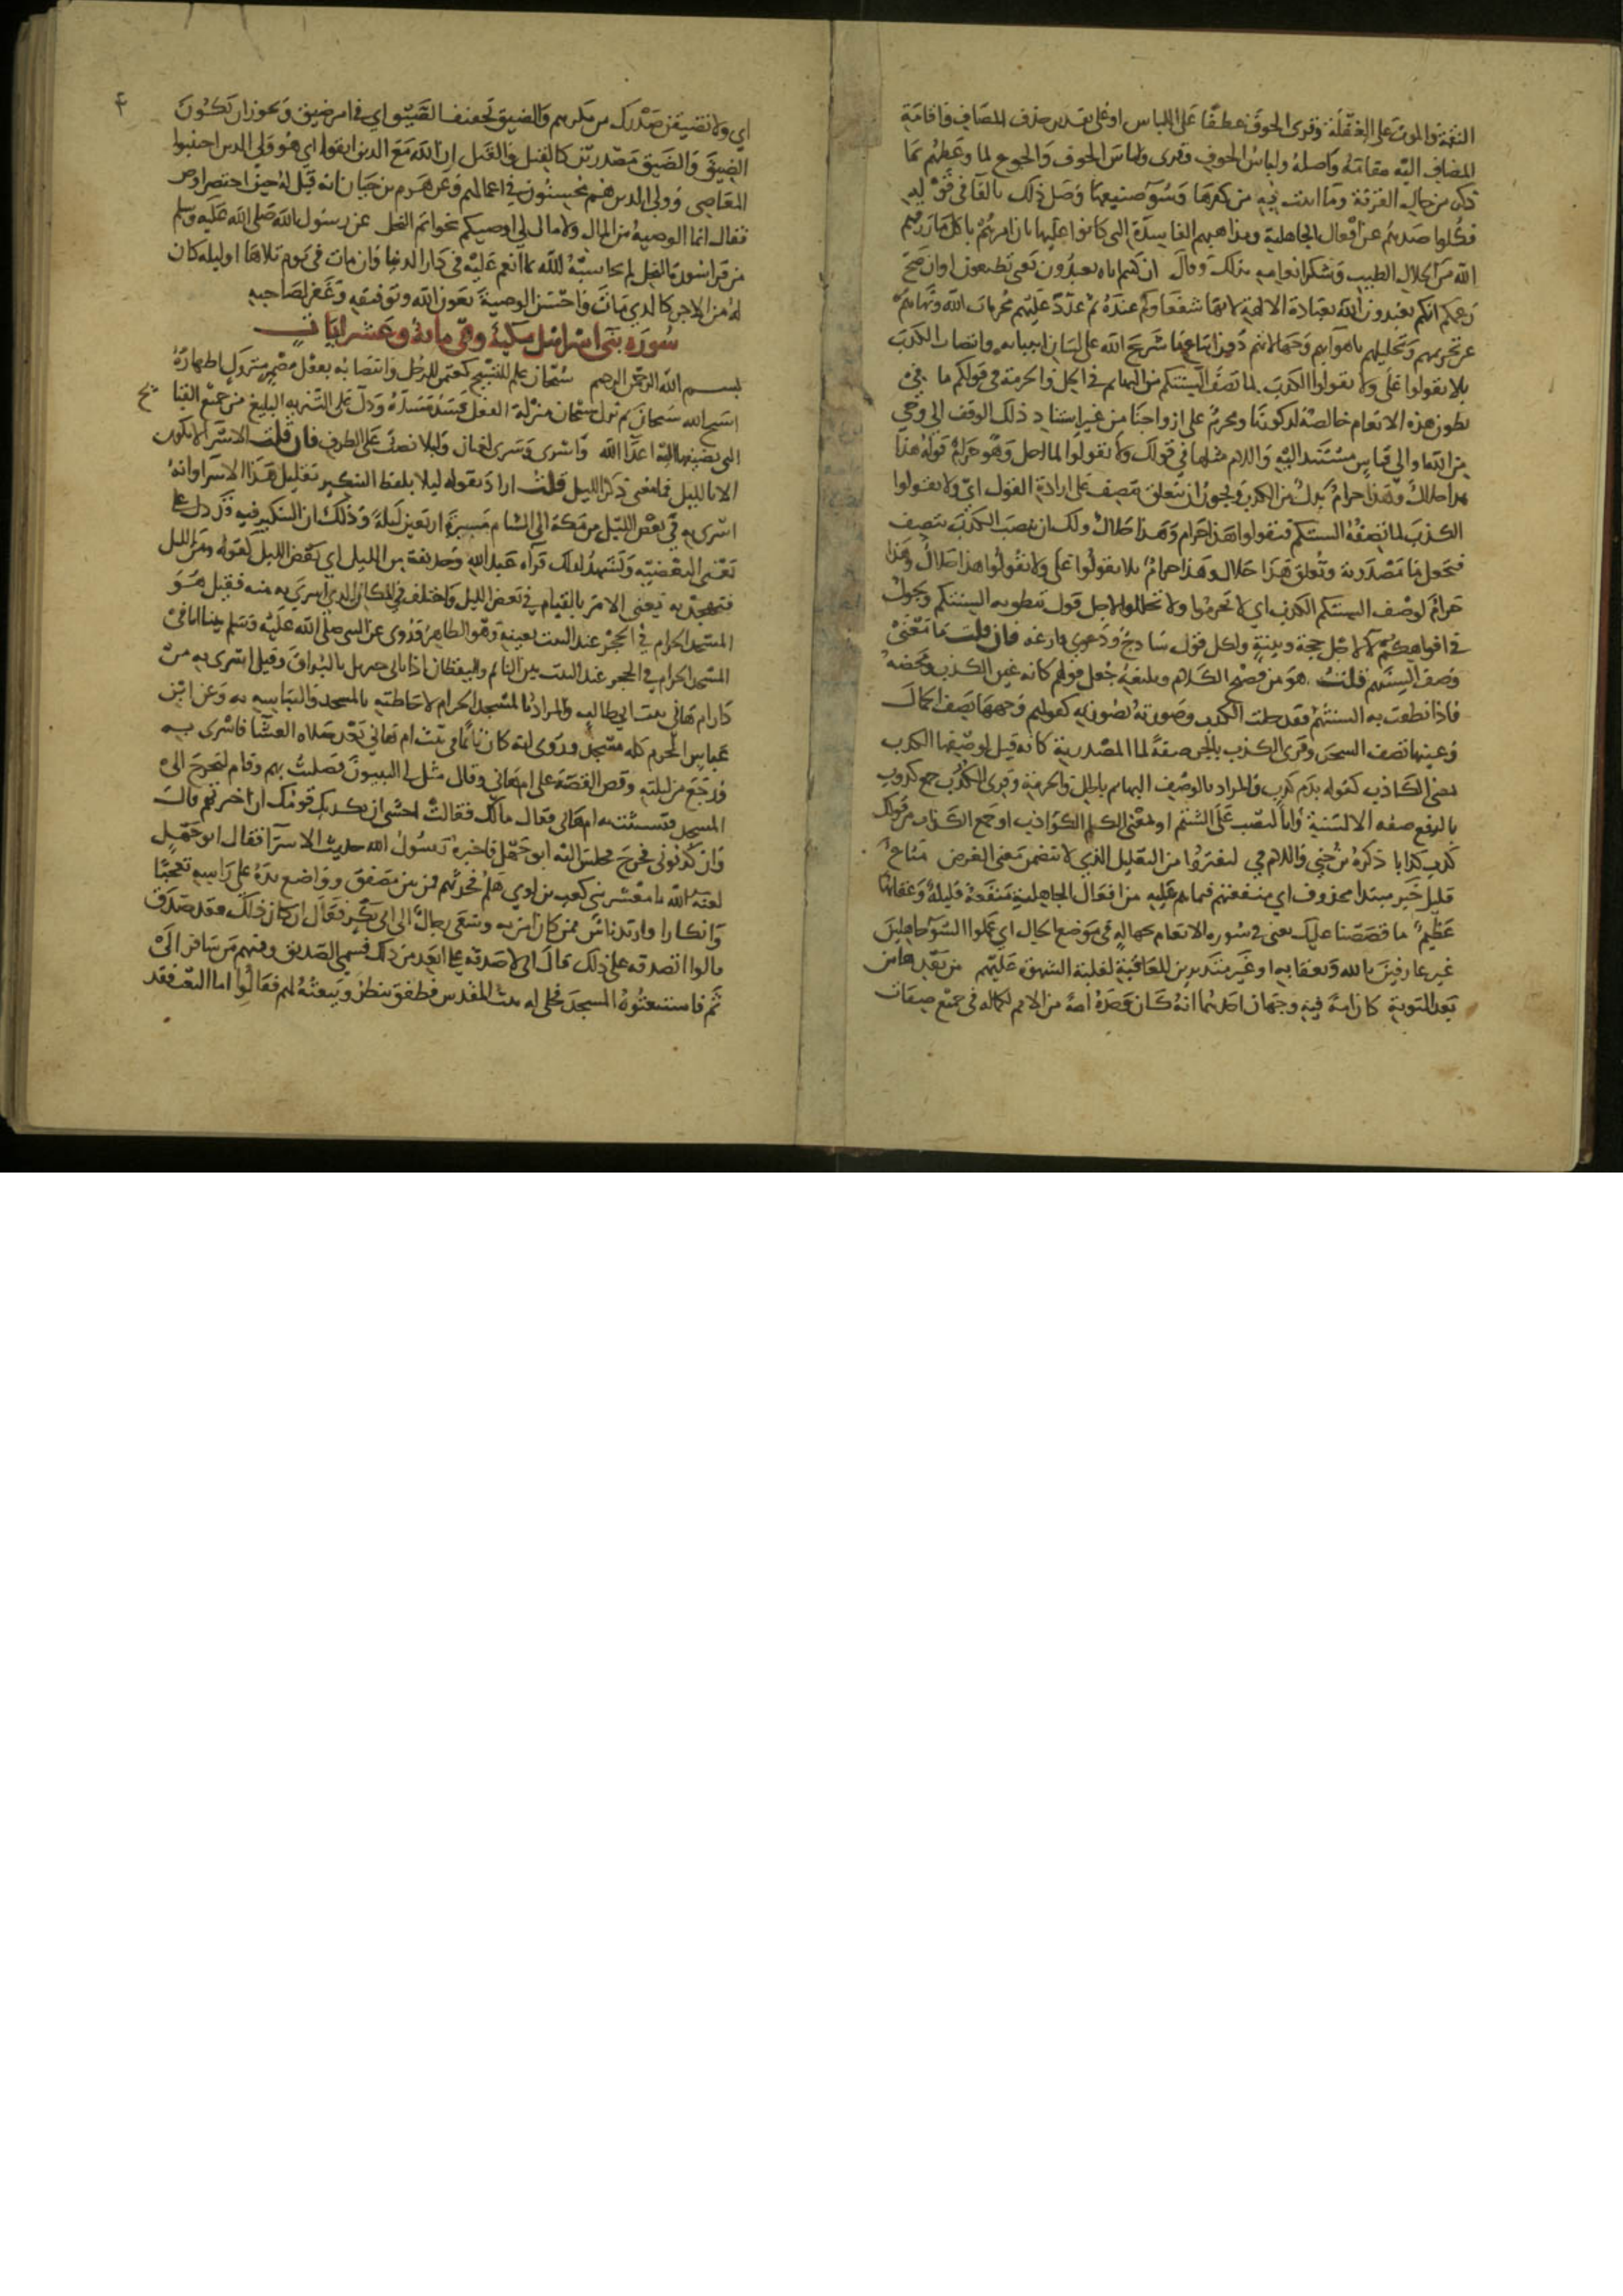 النقمة والموت على الغفلة وقرئ الخوف عطفا على اللباس او على تقدير حذف المضاف واقامة
المضاف اليه مقامه واصله ولباس الخوف وقرئ ولباس الخوف والجوع لما وعظهم بما
ذكر من حال القرية وما اتيت به من كفرها وسوء صنيعها وصل ذلك بالفا في قوله
فكلوا صدهم عن افعال الجاهلية ومذاهبهم الفاسدة التي كانوا عليها بان امرهم باكل ما رزقهم
الله من الحلال الطيب وشكر انعامه بذلك وقال ان كنتم اياه تعبدون يعني تطيعون او ان صح
زعمكم انكم تعبدون الله بعبادة الالهة لانها شفعاوكم عنده ثم عدد عليهم محرمات الله ونهاهم
عن تحريمهم وتحليلهم باهوائهم وجهالاتهم دون اتباع ما شرع الله على لسان انبيائه وانتصاب الكذب
بلا تقولوا على ولا تقولوا الكذب لما تصف السنتكم من البهائم في الحل والحرمة في قولكم ما في
بطون هذه الانعام خالصة لذكورنا ومحرم على ازواجنا من غير استناد ذلك الوصف الى وحي
من الله او الى قياس مستند اليه واللام مثلها في قولك ولا تقولوا لما احل وهو حرام قوله هذا
هذا حلال وهذا حرام بدل من الكذب ويجوز ان تتعلق بتصف على ارادة القول اي ولا تقولوا
الكذب لما تصفه السنتكم فتقولوا هذا حرام وهذا حلال ولك ان تنصب الكذب بتصف
فتجعل ما مصدرية وتعلق هذا حلال وهذا حرام بلا تقولوا على ولا تقولوا هذا حلال وهذا
حرام لوصف السنتكم الكذب اي لا تحرموا ولا تحللوا لاجل قول تنطق به السنتكم ويجول
في افواهكم لا لاجل حجة وبينة ولكن قول ساذج ودعوى فارغة فان قلت ما معنى
وصف السنتهم قلت هو من فصيح الكلام وبليغه جعل قولهم كانه عين الكذب ومحضه
فاذا نطقت به السنتهم فقد حلت الكذب وصورته بصورته كقولهم وجهها يصف الجمال
وعينها تصف السحر وقرئ الكذب بالجر صفة لما المصدرية كانه قيل لوصفها الكذب
بمعنى الكاذب كقوله بدم كذب والمراد بالوصف البهائم بالحل والحرمة وقرئ الكذب جمع كذوب
بالرفع صفة للالسنة وبالنصب على الشتم او بمعنى الكلم الكواذب او جمع الكذاب من قولك
كذب كذابا ذكره ابن جني واللام في لتفتروا من التعليل الذي لا يتضمن معنى الغرض متاع
قليل خبر مبتدا محذوف اي منفعتهم فيما هم عليه من افعال الجاهلية منفعة قليلة وعقابها
عظيم ما قصصنا عليك يعني في سورة الانعام بجهالة في موضع الحال اي عملوا السوء جاهلين
غير عارفين بالله وبعقابه او غير متدبرين للعاقبة لغلبة الشهوة عليهم من بعدها من
بعد التوبة كان امة فيه وجهان احدهما انه كان وحده امة من الامم لكماله في جميع صفات
٤
اي ولا تضيقن صدرك من مكرهم والضيق تخفيف الضيق اي في امر ضيق ويجوز ان تكون
الضيق والضيق مصدرين كالقيل والقول ان الله مع الذين اتقوا اي هو ولي الذين اجتنبوا
المعاصي وولي الذين هم محسنون في اعمالهم وعن هرم بن حيان انه قيل له حين احتضر اوص
فقال انما الوصية من المال ولا مال لي اوصيكم بخواتم النحل عن رسول الله صلى الله عليه وسلم
من قرا سورة النحل لم يحاسبه الله بما انعم عليه في دار الدنيا وان مات في يوم تلاها او ليلة كان
له من الاجر كالذي مات واحسن الوصية بعون الله وتوفيقه وغفر لصاحبه
سورة بني اسرائيل مكية وهي مائة وعشر ايات
بسم الله الرحمن الرحيم سبحان علم للتسبيح كعثمن للرجل وانتصابه بفعل مضمر متروك اظهاره
اسبح الله سبحان ثم نزل سبحان منزلة الفعل فسد مسده ودل على التنزيه البليغ من جميع القبائح
التي يضيفها اليه اعدا الله واسرى وسرى لغتان وليلا نصب على الظرف فان قلت الاسرا لا يكون
الا بالليل فما معنى ذكر الليل قلت اراد بقوله ليلا بلفظ التنكير تقليل هذا الاسرا وانه
اسري به في بعض الليل من مكة الى الشام مسيرة اربعين ليلة وذلك ان التنكير فيه قد دل على
معنى البعضية ويشهد لذلك قراة عبد الله وحذيفة من الليل اي بعض الليل كقوله ومن الليل
فتهجد به يعني الامر بالقيام في بعض الليل واختلف في المكان الذي اسري به منه فقيل هو
المسجد الحرام في الحجر عند البيت بعينه وهو الظاهر فروى عن النبي صلى الله عليه وسلم بينا انا في
المسجد الحرام في الحجر عند البيت بين النائم واليقظان اذ اتاني جبريل بالبراق وقيل اسري به من
دار ام هاني بنت ابي طالب والمراد بالمسجد الحرام لاحاطته بالمسجد والتباسه به وعن ابن
عباس الحرم كله مسجد وروى انه كان نائما في بيت ام هاني بعد صلاة العشا فاسري به
ورجع من ليلته وقص القصة على ام هاني وقال مثل لي النبيون فصليت بهم وقام ليخرج الى
المسجد فتشبثت به ام هاني فقال مالك فقالت اخشى ان يكذبك قومك ان اخبرتهم قال
وان كذبوني فخرج مجلس اليه ابو جهل فاخبره رسول الله حديث الاسرا فقال ابو جهل
لعنه الله يا معشر بني كعب بن لوي هلم فحدثهم فمن بين مصفق وواضع يده على راسه تعجبا
وانكارا وارتد ناس ممن كان امن به وسعى رجال الى ابي بكر فقال ان كان قال ذلك فقد صدق
قالوا اتصدقه على ذلك قال اني لاصدقه على ابعد من ذلك فسمي الصديق وفيهم من سافر الى
ثم فاستنعتوه المسجد فجلى له بيت المقدس فطفق ينظر وينعته لهم فقالوا اما النعت فقد